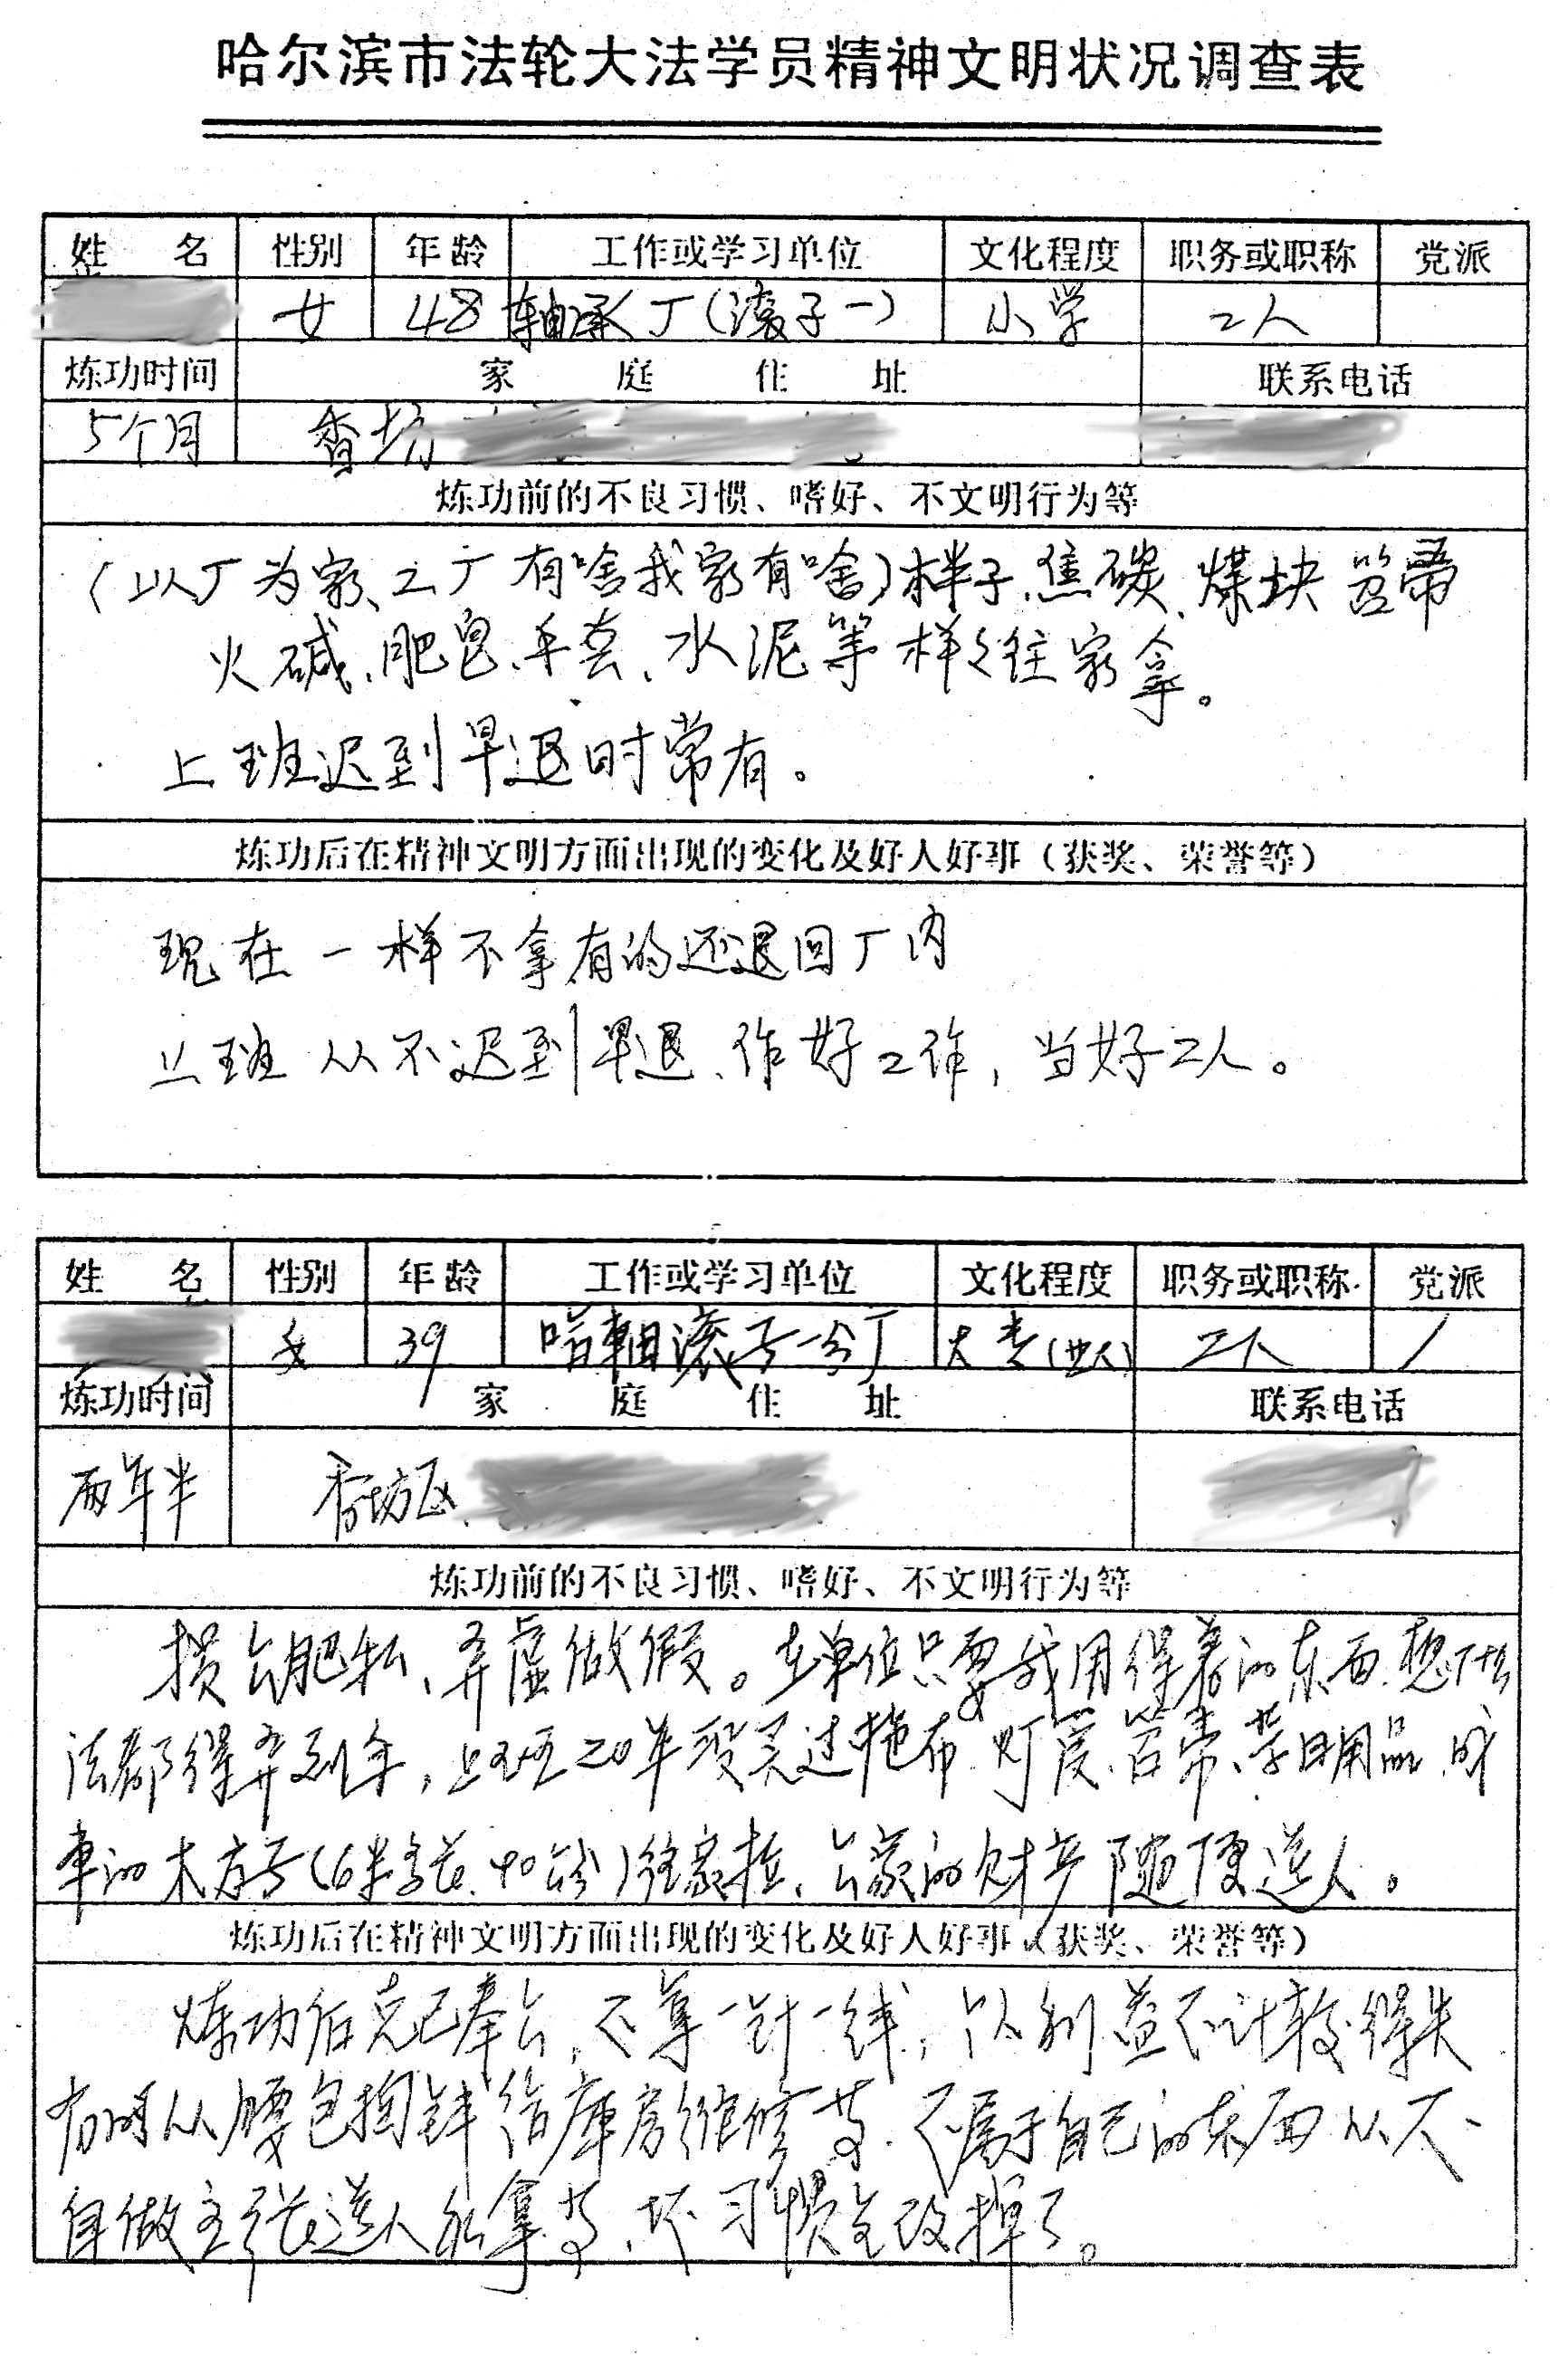 哈尔滨市法轮大法学员精神文明状况调查表
姓 名 性别 年龄 工作或学习单位 文化程度 职务或职称 党派
女 48 轴承厂(滚子一) 小学 工人
炼功时间 家庭住址 联系电话
5个月 香坊
炼功前的不良习惯、嗜好、不文明行为等
(以厂为家、工厂有啥我家有啥)样子、焦碳、煤块 笤帚
火碱、肥皂、手套、水泥等样々往家拿。
上班迟到早退时常有。
炼功后在精神文明方面出现的变化及好人好事（获奖、荣誉等）
现在一样不拿有的还退回厂内
上班从不迟到早退、作好工作，当好工人。
姓 名 性别 年龄 工作或学习单位 文化程度 职务或职称 党派
女 39 哈轴滚子一分厂 大专(业大) 工人 /
炼功时间 家庭住址 联系电话
两年半 香坊区
炼功前的不良习惯、嗜好、不文明行为等
损公肥私、弄虚做假。在单位只要我用得着的东西、想
法都得弄到手，上班20年没买过拖布、灯泡、笤帚、等日用品、成
车的木方子(6米多长、40公分)往家拉、公家的财产随便送人。
炼功后在精神文明方面出现的变化及好人好事（获奖、荣誉等）
炼功后克己奉公，不拿一针一线，个人利益不计较得失
有时从腰包掏钱给库房维修等、不属于自己的东西从不
自做主张送人和拿等、坏习惯全改掉了。